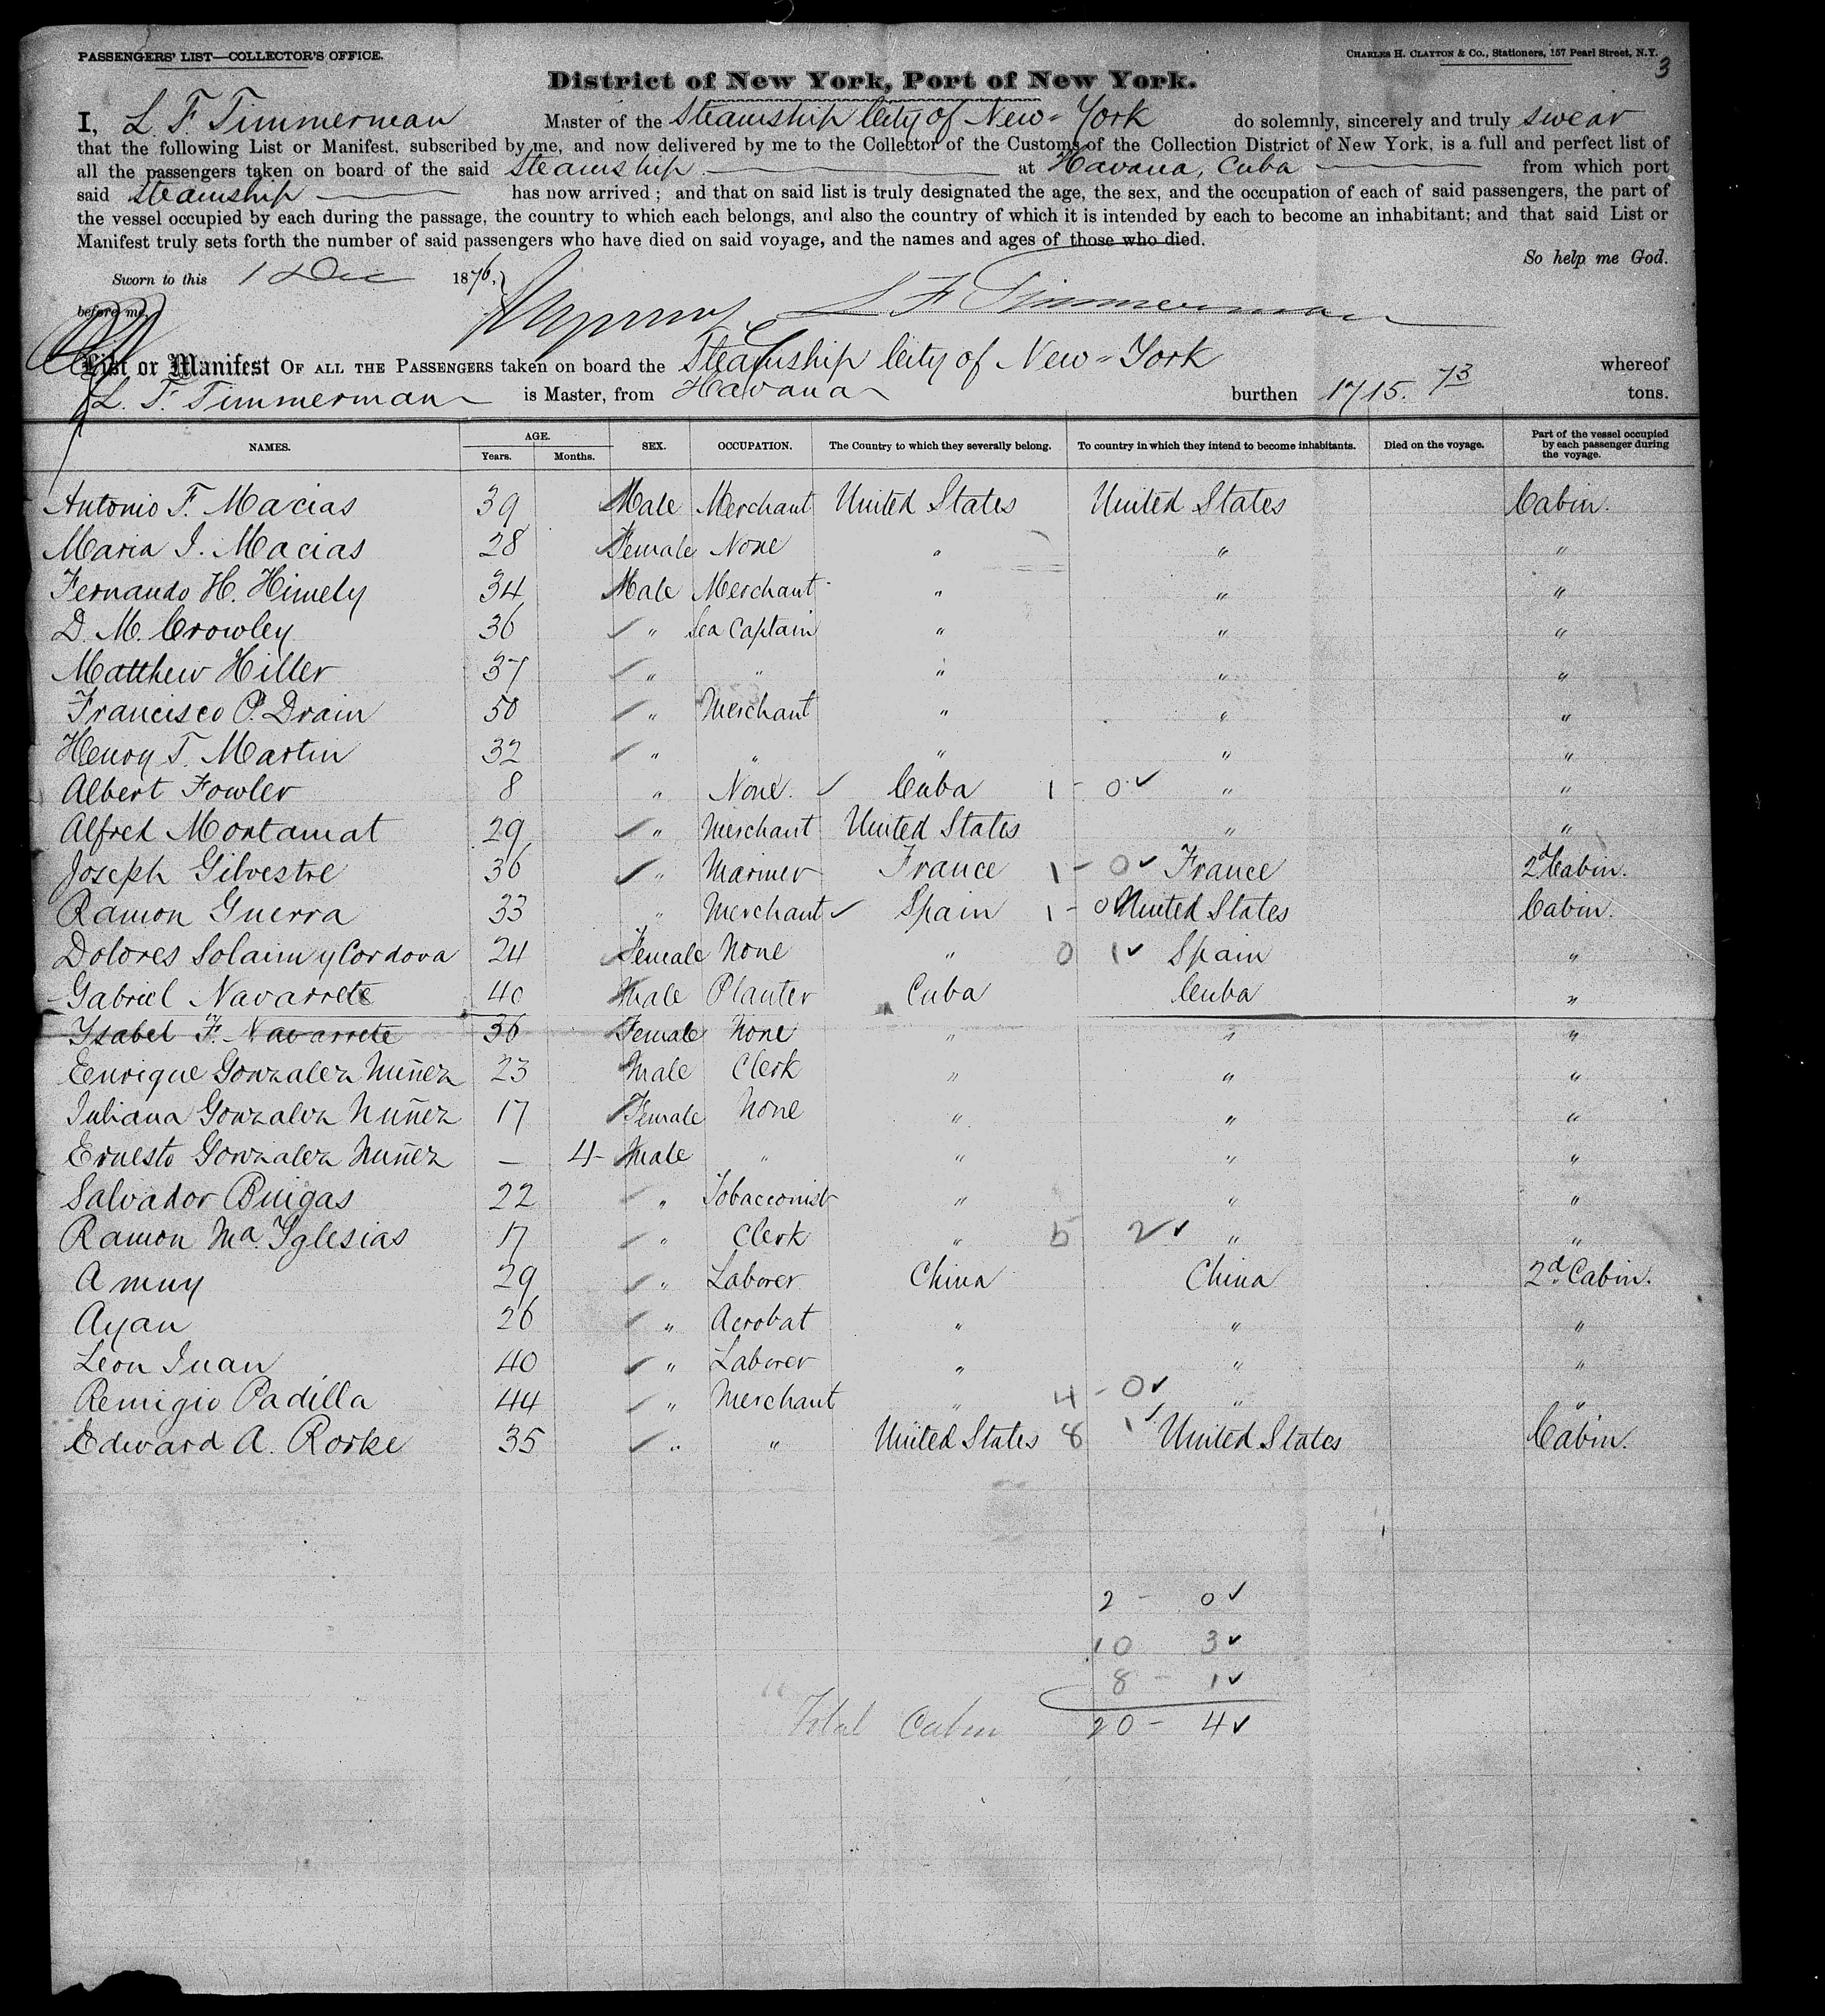 PASSENGERS' LIST—COLLECTOR'S OFFICE.
CHARLES H. CLAYTON & Co., Stationers, 157 Pearl Street, N.Y.
3
District of New York, Port of New York.
I, L. F. Timmerman Master of the Steamship City of New-York do solemnly, sincerely and truly swear
that the following List or Manifest, subscribed by me, and now delivered by me to the Collector of the Customs of the Collection District of New York, is a full and perfect list of
all the passengers taken on board of the said Steamship at Havana, Cuba from which port
said Steamship has now arrived; and that on said list is truly designated the age, the sex, and the occupation of each of said passengers, the part of
the vessel occupied by each during the passage, the country to which each belongs, and also the country of which it is intended by each to become an inhabitant; and that said List or
Manifest truly sets forth the number of said passengers who have died on said voyage, and the names and ages of those who died.
So help me God.
Sworn to this 1 Dec 1876,
before me, L F Timmerman
List or Manifest OF ALL THE PASSENGERS taken on board the Steamship City of New-York whereof
L. F. Timmerman is Master, from Havana burthen 1715. 73 tons.
NAMES. AGE. Years. Months. SEX. OCCUPATION. The Country to which they severally belong. To country in which they intend to become inhabitants. Died on the voyage. Part of the vessel occupied by each passenger during the voyage.
Antonio F. Macias 39 Male Merchant United States United States Cabin.
Maria I. Macias 28 Female None " " "
Fernando H. Himely 34 Male Merchant " " "
D. M. Crowley 36 " Sea Captain " " "
Matthew Hiller 37 " " " " "
Francisco P. Drain 50 " Merchant " " "
Henry T. Martin 32 " " " " "
Albert Fowler 8 " None. ✓ Cuba 1 - 0 ✓ " "
Alfred Montamat 29 ✓ " Merchant United States " "
Joseph Gilvestre 36 ✓ " Mariner France 1 - 0 ✓ France 2d Cabin.
Ramon Guerra 33 " Merchant ✓ Spain 1 - 0 ✓ United States Cabin.
Dolores Solaim y Cordova 24 Female None " 0 1 ✓ Spain "
Gabriel Navarrete 40 Male Planter Cuba Cuba "
Ysabel F. Navarrete 36 Female None " " "
Enrique Gonzalez Nuñez 23 Male Clerk " " "
Juliana Gonzalez Nuñez 17 Female None " " "
Ernesto Gonzalez Nuñez — 4 Male " " " "
Salvador Buigas 22 " Tobacconist " " "
Ramon Ma. Yglesias 17 ✓ " Clerk " 5 2 ✓ " "
Amuy 29 ✓ " Laborer China China 2d Cabin.
Ayan 26 ✓ " Acrobat " " "
Leon Juan 40 ✓ " Laborer " " "
Remigio Padilla 44 ✓ " Merchant " 4 - 0 ✓ " "
Edward A. Rorke 35 ✓ " " United States 8 1 ✓ United States Cabin.
2 - 0 ✓
10 3 ✓
8 - 1 ✓
Total Cabin 20 - 4 ✓